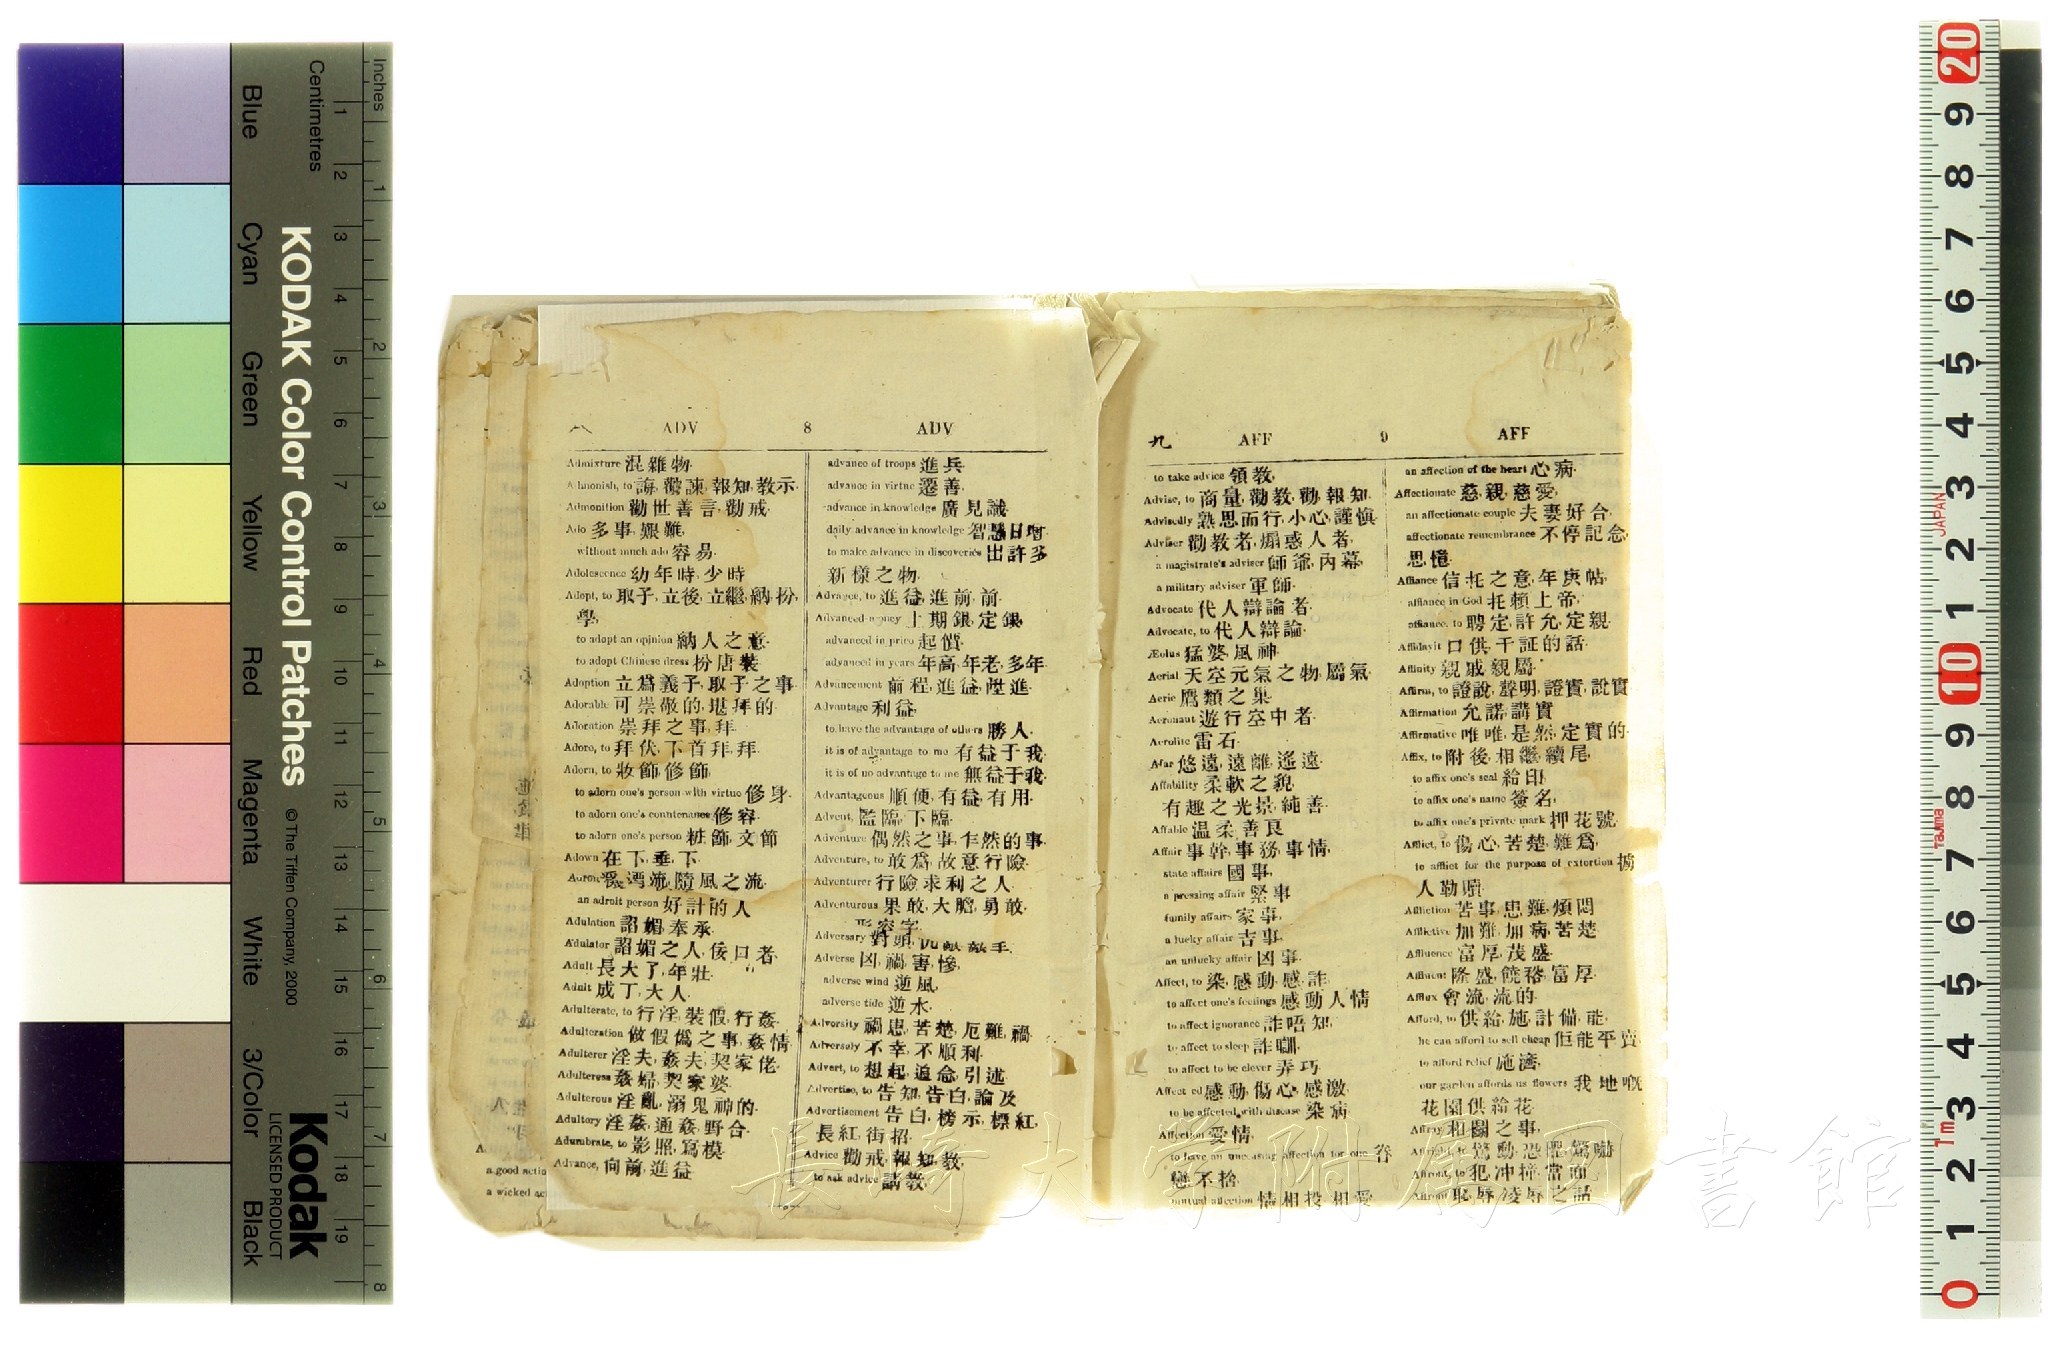 八 ADV 8 ADV
Admixture 混雜物.
Admonish, to 誨, 勸諫, 報知, 教示.
Admonition 勸世善言, 勸戒.
Ado 多事, 艱難,
without much ado 容易.
Adolescence 幼年時, 少時
Adopt, to 取子, 立後, 立繼, 納, 扮,
學,
to adopt an opinion 納人之意.
to adopt Chinese dress 扮唐裝
Adoption 立爲義子, 取子之事
Adorable 可崇敬的, 堪拜的.
Adoration 崇拜之事, 拜.
Adore, to 拜伏, 下首拜, 拜.
Adorn, to 妝飾, 修飾
to adorn one's person with virtue 修身.
to adorn one's countenance 修容.
to adorn one's person 粧飾, 文飾
Adown 在下, 垂, 下.
隨風之流.
an adroit person 好計的人
Adulation 諂媚, 奉承.
Adulator 諂媚之人, 佞口者.
Adult 長大了, 年壯.
Adult 成丁, 大人.
Adulterate, to 行淫, 裝假, 行姦.
Adulteration 做假僞之事, 姦情
Adulterer 淫夫, 姦夫, 契家佬.
Adulteress 姦婦, 契家婆.
Adulterous 淫亂, 溺鬼神的.
Adultery 淫姦, 通姦, 野合.
Adumbrate, to 影照, 寫模
Advance, 向前, 進益
advance of troops 進兵.
advance in virtue 遷善,
advance in knowledge 廣見識.
daily advance in knowledge 智慧日增.
to make advance in discoveries 出許多
新樣之物.
Advance, to 進益, 進前, 前.
Advanced money 上期銀, 定銀,
advanced in price 起價.
advanced in years 年高, 年老, 多年.
Advancement 前程, 進益, 陞進.
Advantage 利益.
to have the advantage of others 勝人.
it is of advantage to me 有益于我.
it is of no advantage to me 無益于我.
Advantageous 順便, 有益, 有用.
Advent, 監臨, 下臨.
Adventure 偶然之事, 乍然的事.
Adventure, to 敢爲, 故意行險.
Adventurer 行險求利之人.
Adventurous 果敢, 大膽, 勇敢.
形容字
Adversary 對頭, 仇敵, 敵手.
Adverse 凶, 禍, 害, 慘,
adverse wind 逆風,
adverse tide 逆水.
Adversity 禍患, 苦楚, 厄難, 禍.
Adversely 不幸, 不順利.
Advert, to 想起, 追念, 引述
Advertise, to 告知, 告白, 論及
Advertisement 告白, 榜示, 標紅,
長紅, 街招.
Advice 勸戒, 報知, 教.
to ask advice 請教.
九 AFF 9 AFF
to take advice 領教,
Advise, to 商量, 勸教, 勸, 報知.
Advisedly 熟思而行, 小心, 謹愼
Adviser 勸教者, 煽惑人者.
a magistrate's adviser 師爺, 內幕,
a military adviser 軍師.
Advocate 代人辯論者.
Advocate, to 代人辯論.
Æolus 猛婆, 風神.
Aerial 天空元氣之物, 屬氣.
Aerie 鷹類之巢.
Aeronaut 遊行空中者.
Aerolite 雷石.
Afar 悠遠, 遠離, 遙遠.
Affability 柔軟之貌,
有趣之光景, 純善.
Affable 温柔善良
Affair 事幹, 事務, 事情,
state affairs 國事,
a pressing affair 緊事
family affairs 家事,
a lucky affair 吉事.
an unlucky affair 凶事.
Affect, to 染, 感動, 感, 詐.
to affect one's feelings 感動人情
to affect ignorance 詐唔知,
to affect to sleep 詐瞓,
to affect to be clever 弄巧.
Affected 感動, 傷心, 感激.
to be affected with disease 染病
Affection 愛情,
to have an unceasing affection for one 眷
戀不捨.
mutual affection 情相投, 相愛
an affection of the heart 心病.
Affectionate 慈, 親, 慈愛,
an affectionate couple 夫妻好合.
affectionate remembrance 不停記念,
思憶.
Affiance 信托之意, 年庚帖.
affiance in God 托賴上帝,
affiance, to 聘定, 許允, 定親.
Affidavit 口供, 干証的話.
Affinity 親戚, 親屬.
Affirm, to 證說, 聲明, 證實, 說實
Affirmation 允諾, 講實
Affirmative 唯唯, 是然, 定實的.
Affix, to 附後, 相繼, 續尾,
to affix one's seal 給印.
to affix one's name 簽名,
to affix one's private mark 押花號.
Afflict, to 傷心, 苦楚, 難爲,
to afflict for the purpose of extortion 擄
人勒贖.
Affliction 苦事, 患難, 煩悶
Afflictive 加難, 加病, 苦楚
Affluence 富厚, 茂盛.
Affluent 隆盛, 饒裕, 富厚.
Afflux 會流, 流的.
Afford, to 供給, 施, 計備, 能,
he can afford to sell cheap 佢能平賣.
to afford relief 施濟,
our garden affords us flowers 我地嘅
花園供給花.
Affray 相鬭之事,
Affright, to 驚動, 恐嚇, 驚嚇
Affront, to 犯, 冲撞, 當面
Affront 恥辱, 凌辱之話
a good actio
a wicked ac
長崎大学附属図書館
KODAK Color Control Patches
© The Tiffen Company, 2000
Kodak
LICENSED PRODUCT
Inches 1 2 3 4 5 6 7 8
Centimetres 1 2 3 4 5 6 7 8 9 10 11 12 13 14 15 16 17 18 19
Blue Cyan Green Yellow Red Magenta White 3/Color Black
20 9 8 7 6 5 4 3 2 1 10 9 8 7 6 5 4 3 2 1 0
JAPAN
Tajima
1m